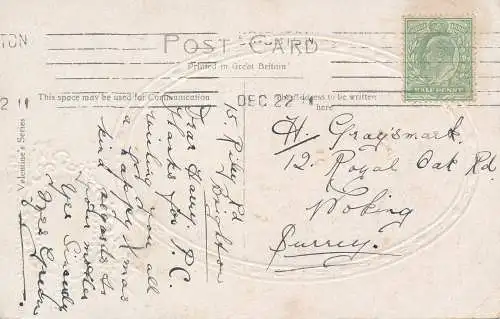 POST CARD
Printed in Great Britain
TON
DEC 22 11
2 11
This space may be used for Communication
Address to be written
here
HALF PENNY
Valentine's Series
15 Riley Rd
Brighton
Dear Harry. P.C.
Thanks for
wishing you all
a happy Xmas
kind regards to
your mother
Yrs Sincerely
H. Graysmark.
12. Royal Oak Rd
Woking
Surrey.